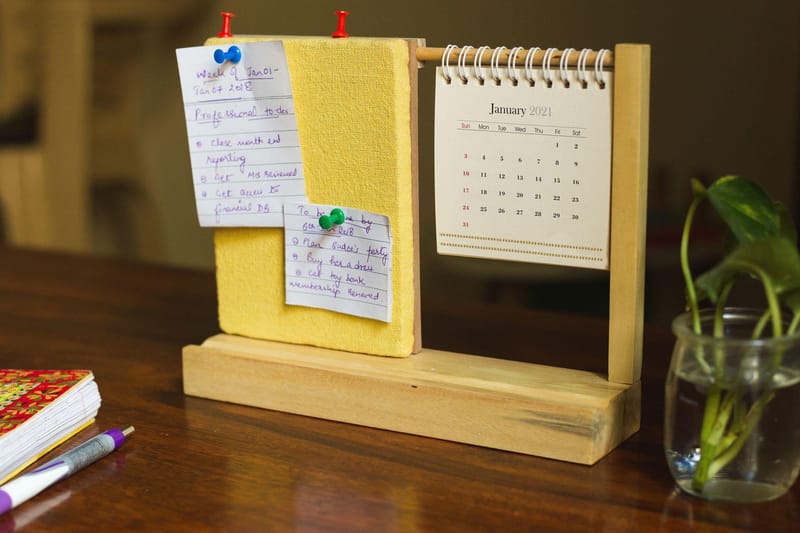 Week of Jan 01-
Jan 07 2018
Professional to-dos
Close month end
reporting
Get MB reviewed
Get access to
financial DB
To be by
2018
Plan party
Buy her a dress
Get toy bank
membership renewed
January 2021
Sun Mon Tue Wed Thu Fri Sat
1 2
3 4 5 6 7 8 9
10 11 12 13 14 15 16
17 18 19 20 21 22 23
24 25 26 27 28 29 30
31